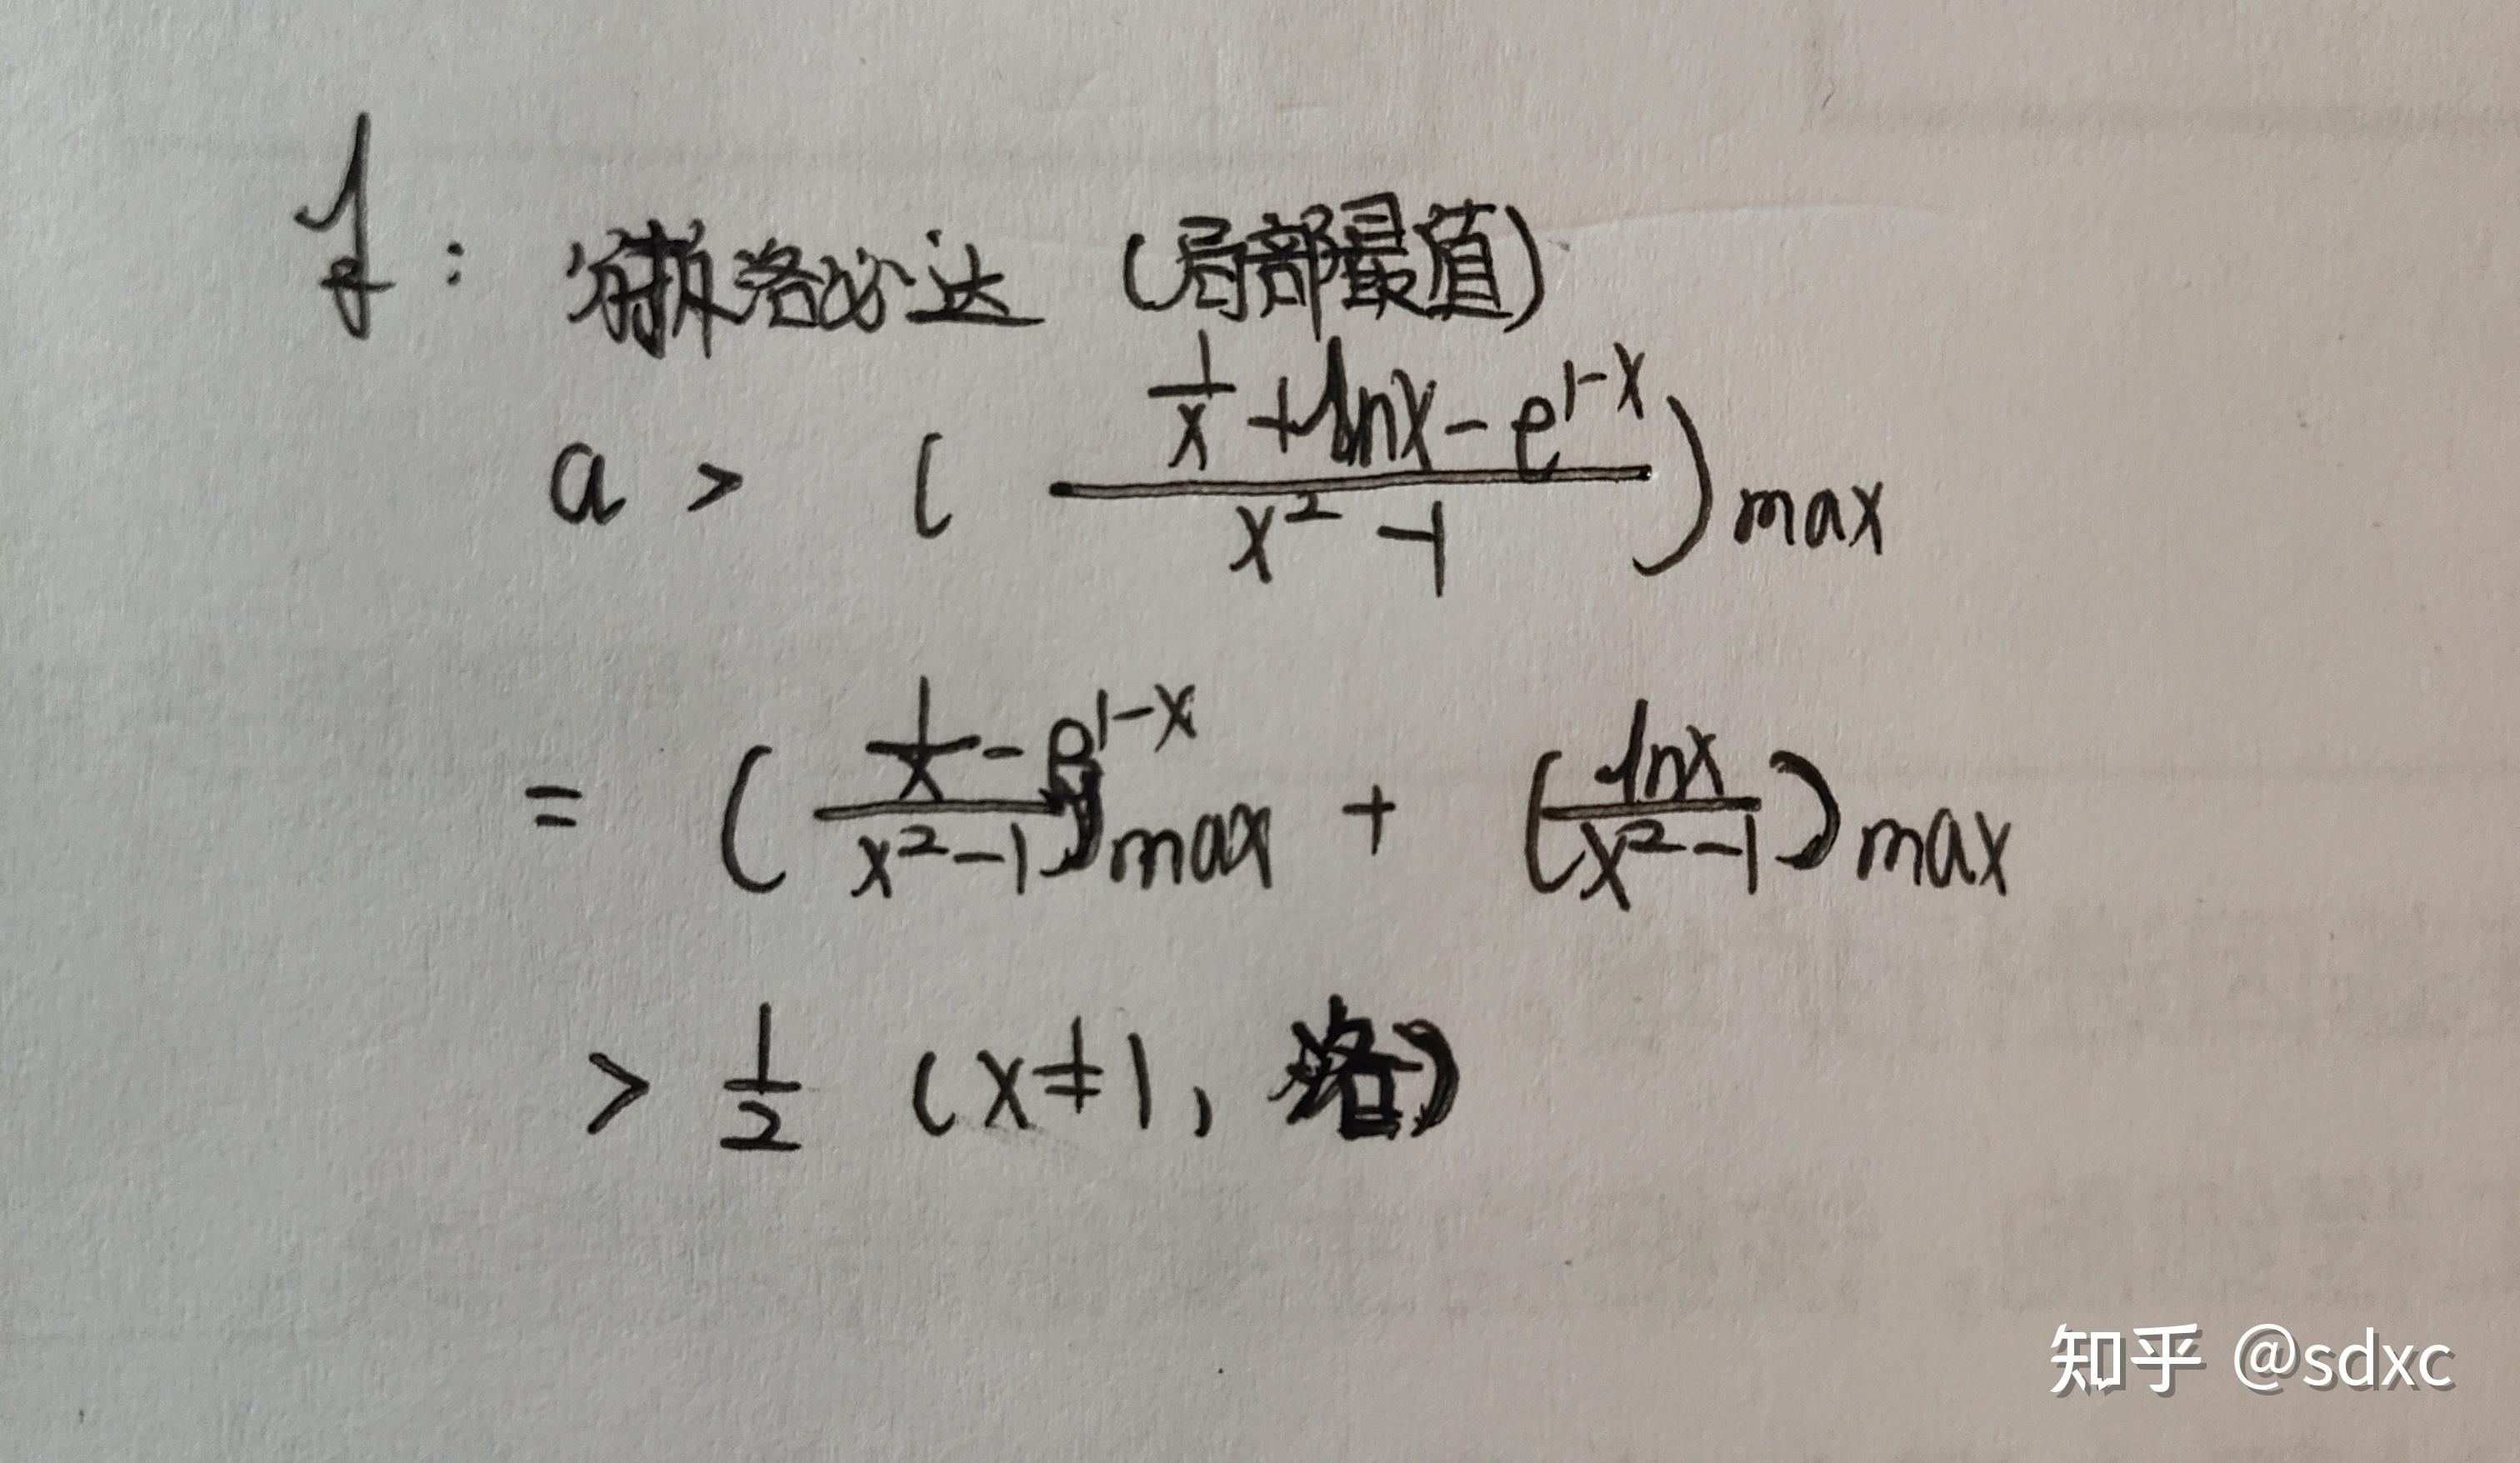 : 分拆洛必达 (局部最值)
a > ( (1/x + lnx - e^(1-x)) / (x² - 1) ) max
= ( (1/x - e^(1-x)) / (x² - 1) ) max + ( lnx / (x² - 1) ) max
> 1/2 (x≠1, 洛)
知乎 @sdxc